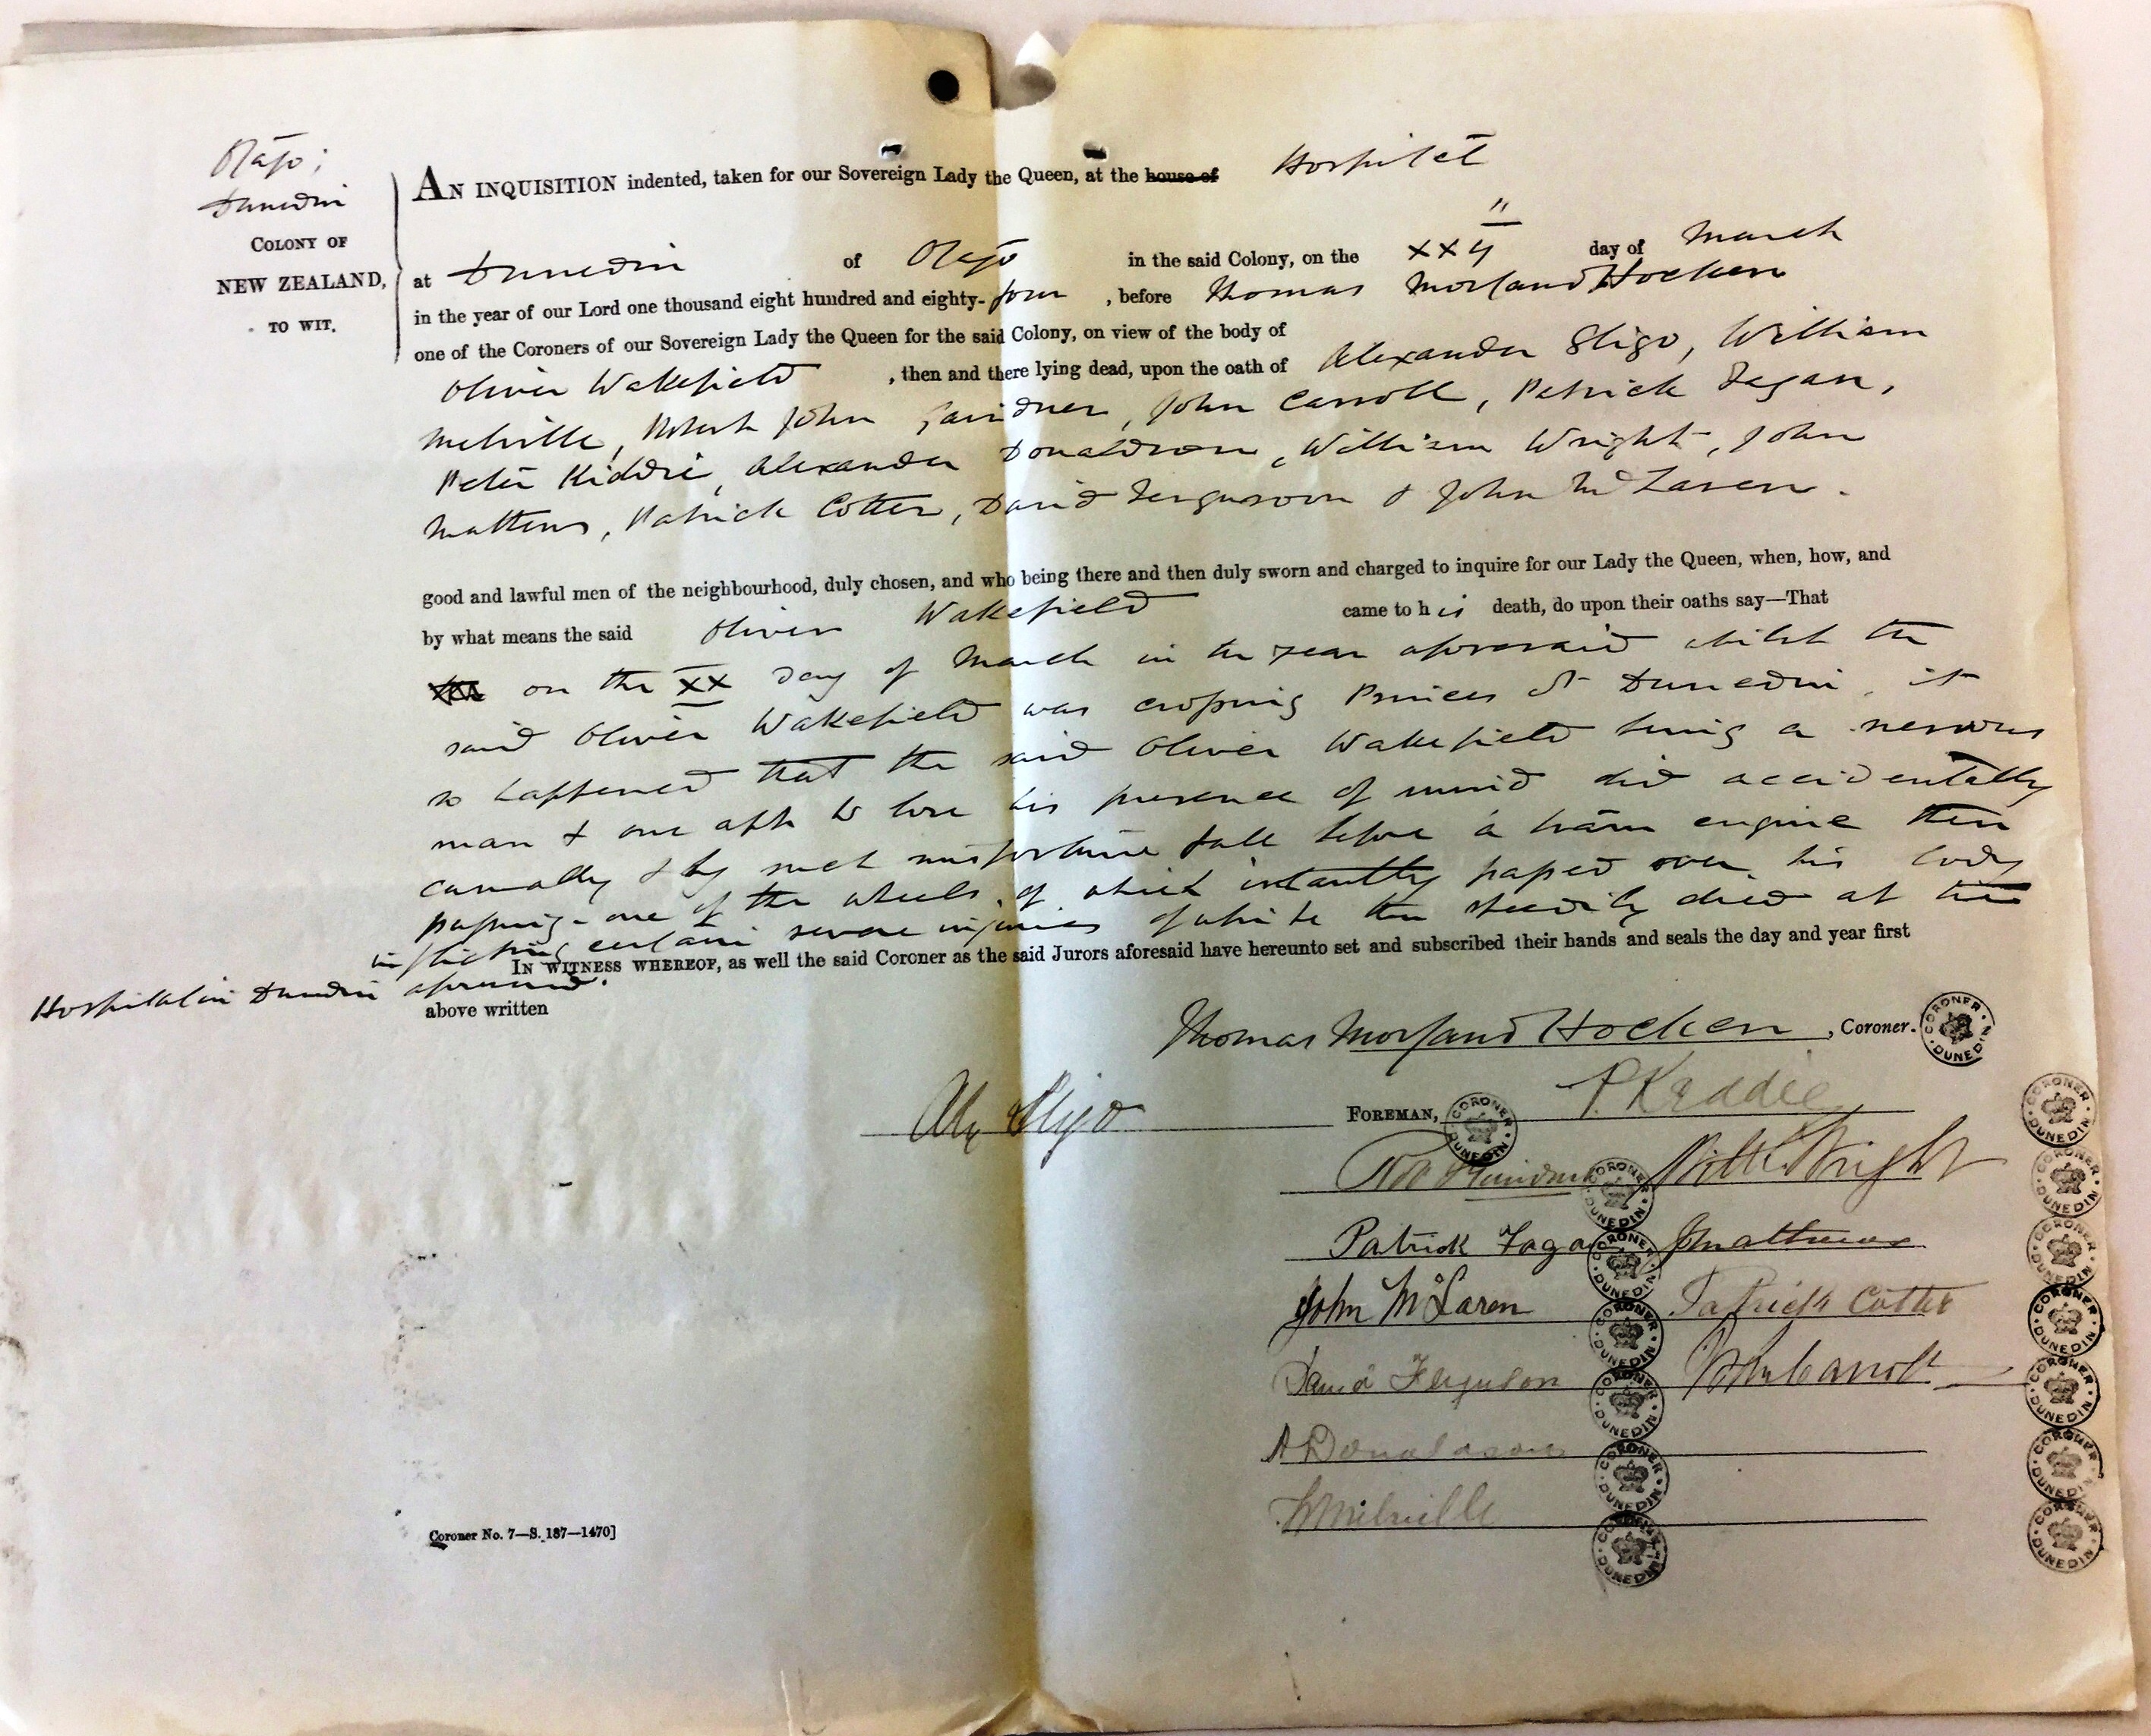 Otago;
Dunedin
COLONY OF
NEW ZEALAND,
TO WIT.
AN INQUISITION indented, taken for our Sovereign Lady the Queen, at the house of Hospital
at Dunedin of Otago in the said Colony, on the day of March
in the year of our Lord one thousand eight hundred and eighty-four, before Thomas Morland Hocken
one of the Coroners of our Sovereign Lady the Queen for the said Colony, on view of the body of
Oliver Wakefield, then and there lying dead, upon the oath of Alexander Sligo, William
Melville, Robert John Gairdner, John Carroll, Patrick Fagan,
Peter Kiddie, Alexander Donaldson, William Wright, John
Mathews, Patrick Cotter, David Fergusson & John McLaren.
good and lawful men of the neighbourhood, duly chosen, and who being there and then duly sworn and charged to inquire for our Lady the Queen, when, how, and
by what means the said Oliver Wakefield came to his death, do upon their oaths say—That
on the XX day of March in the year aforesaid whilst the
said Oliver Wakefield was crossing Princes St Dunedin, it
so happened that the said Oliver Wakefield being a nervous
man & one apt to lose his presence of mind did accidentally
casually & by such misfortune fall before a tram engine then
passing - one of the wheels of which instantly passed over his body
inflicting certain severe injuries of which he died at the
IN WITNESS WHEREOF, as well the said Coroner as the said Jurors aforesaid have hereunto set and subscribed their hands and seals the day and year first
Hospital in Dunedin aforesaid.
above written
Thomas Morland Hocken, Coroner.
CORONER DUNEDIN
Alex Sligo FOREMAN, P. Keddie
Willm Wright
Patrick Fagan J Mathews
John McLaren Patrick Cotter
David Ferguson John Carroll
A Donaldson
W Melville
Coroner No. 7—S. 187—1470]